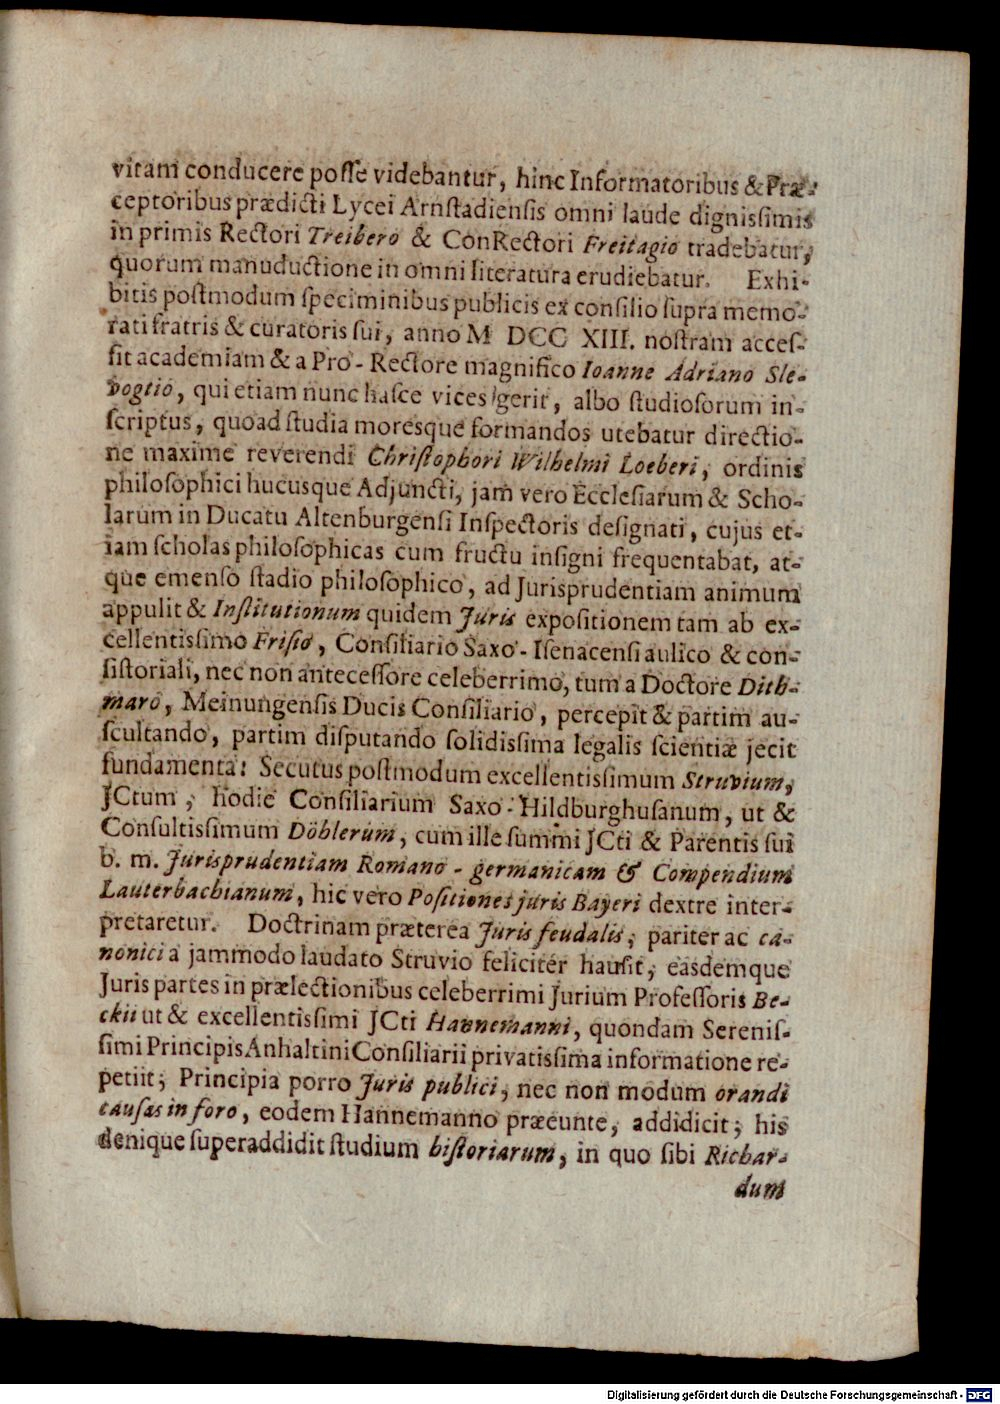 vitam conducere posſe videbantur, hinc Informatoribus & Præ-
ceptoribus prædicti Lycei Arnſtadienſis omni laude digniſſimis
in primis Rectori Treibero & ConRectori Freitagio tradebatur,
quorum manuductione in omni literatura erudiebatur. Exhi-
bitis poſtmodum ſpeciminibus publicis ex conſilio ſupra memo-
rati fratris & curatoris ſui, anno M DCC XIII. noſtram acceſ-
ſit academiam & a Pro-Rectore magnifico Ioanne Adriano Sle-
vogtio, qui etiam nunc haſce vices gerit, albo ſtudioſorum in-
ſcriptus, quoad ſtudia moresque formandos utebatur directio-
ne maxime reverendi Chriſtophori Wilhelmi Loeberi, ordinis
philoſophici hucusque Adjuncti, jam vero Eccleſiarum & Scho-
larum in Ducatu Altenburgenſi Inſpectoris deſignati, cujus et-
iam ſcholas philoſophicas cum fructu inſigni frequentabat, at-
que emenſo ſtadio philoſophico, ad Jurisprudentiam animum
appulit & Inſtitutionum quidem Juris expoſitionem tam ab ex-
cellentiſſimo Friſio, Conſiliario Saxo-Iſenacenſi aulico & con-
ſiſtoriali, nec non anteceſſore celeberrimo, tum a Doctore Dith-
maro, Meinungenſis Ducis Conſiliario, percepit & partim au-
ſcultando, partim diſputando ſolidiſſima legalis ſcientiæ jecit
fundamenta: Secutus poſtmodum excellentiſſimum Struvium,
JCtum, hodie Conſiliarium Saxo-Hildburghuſanum, ut &
Conſultiſſimum Döblerum, cum ille ſummi JCti & Parentis ſui
b. m. Jurisprudentiam Romano-germanicam & Compendium
Lauterbachianum, hic vero Poſitiones juris Bayeri dextre inter-
pretaretur. Doctrinam præterea Juris feudalis, pariter ac ca-
nonici a jammodo laudato Struvio feliciter hauſit, easdemque
Juris partes in prælectionibus celeberrimi Jurium Profeſſoris Be-
ckii ut & excellentiſſimi JCti Hannemanni, quondam Sereniſ-
ſimi Principis Anhaltini Conſiliarii privatiſſima informatione re-
petiit; Principia porro Juris publici, nec non modum orandi
cauſas in foro, eodem Hannemanno præeunte, addidicit; his
denique ſuperaddidit ſtudium hiſtoriarum, in quo ſibi Richar-
dum
Digitalisierung gefördert durch die Deutsche Forschungsgemeinschaft - DFG